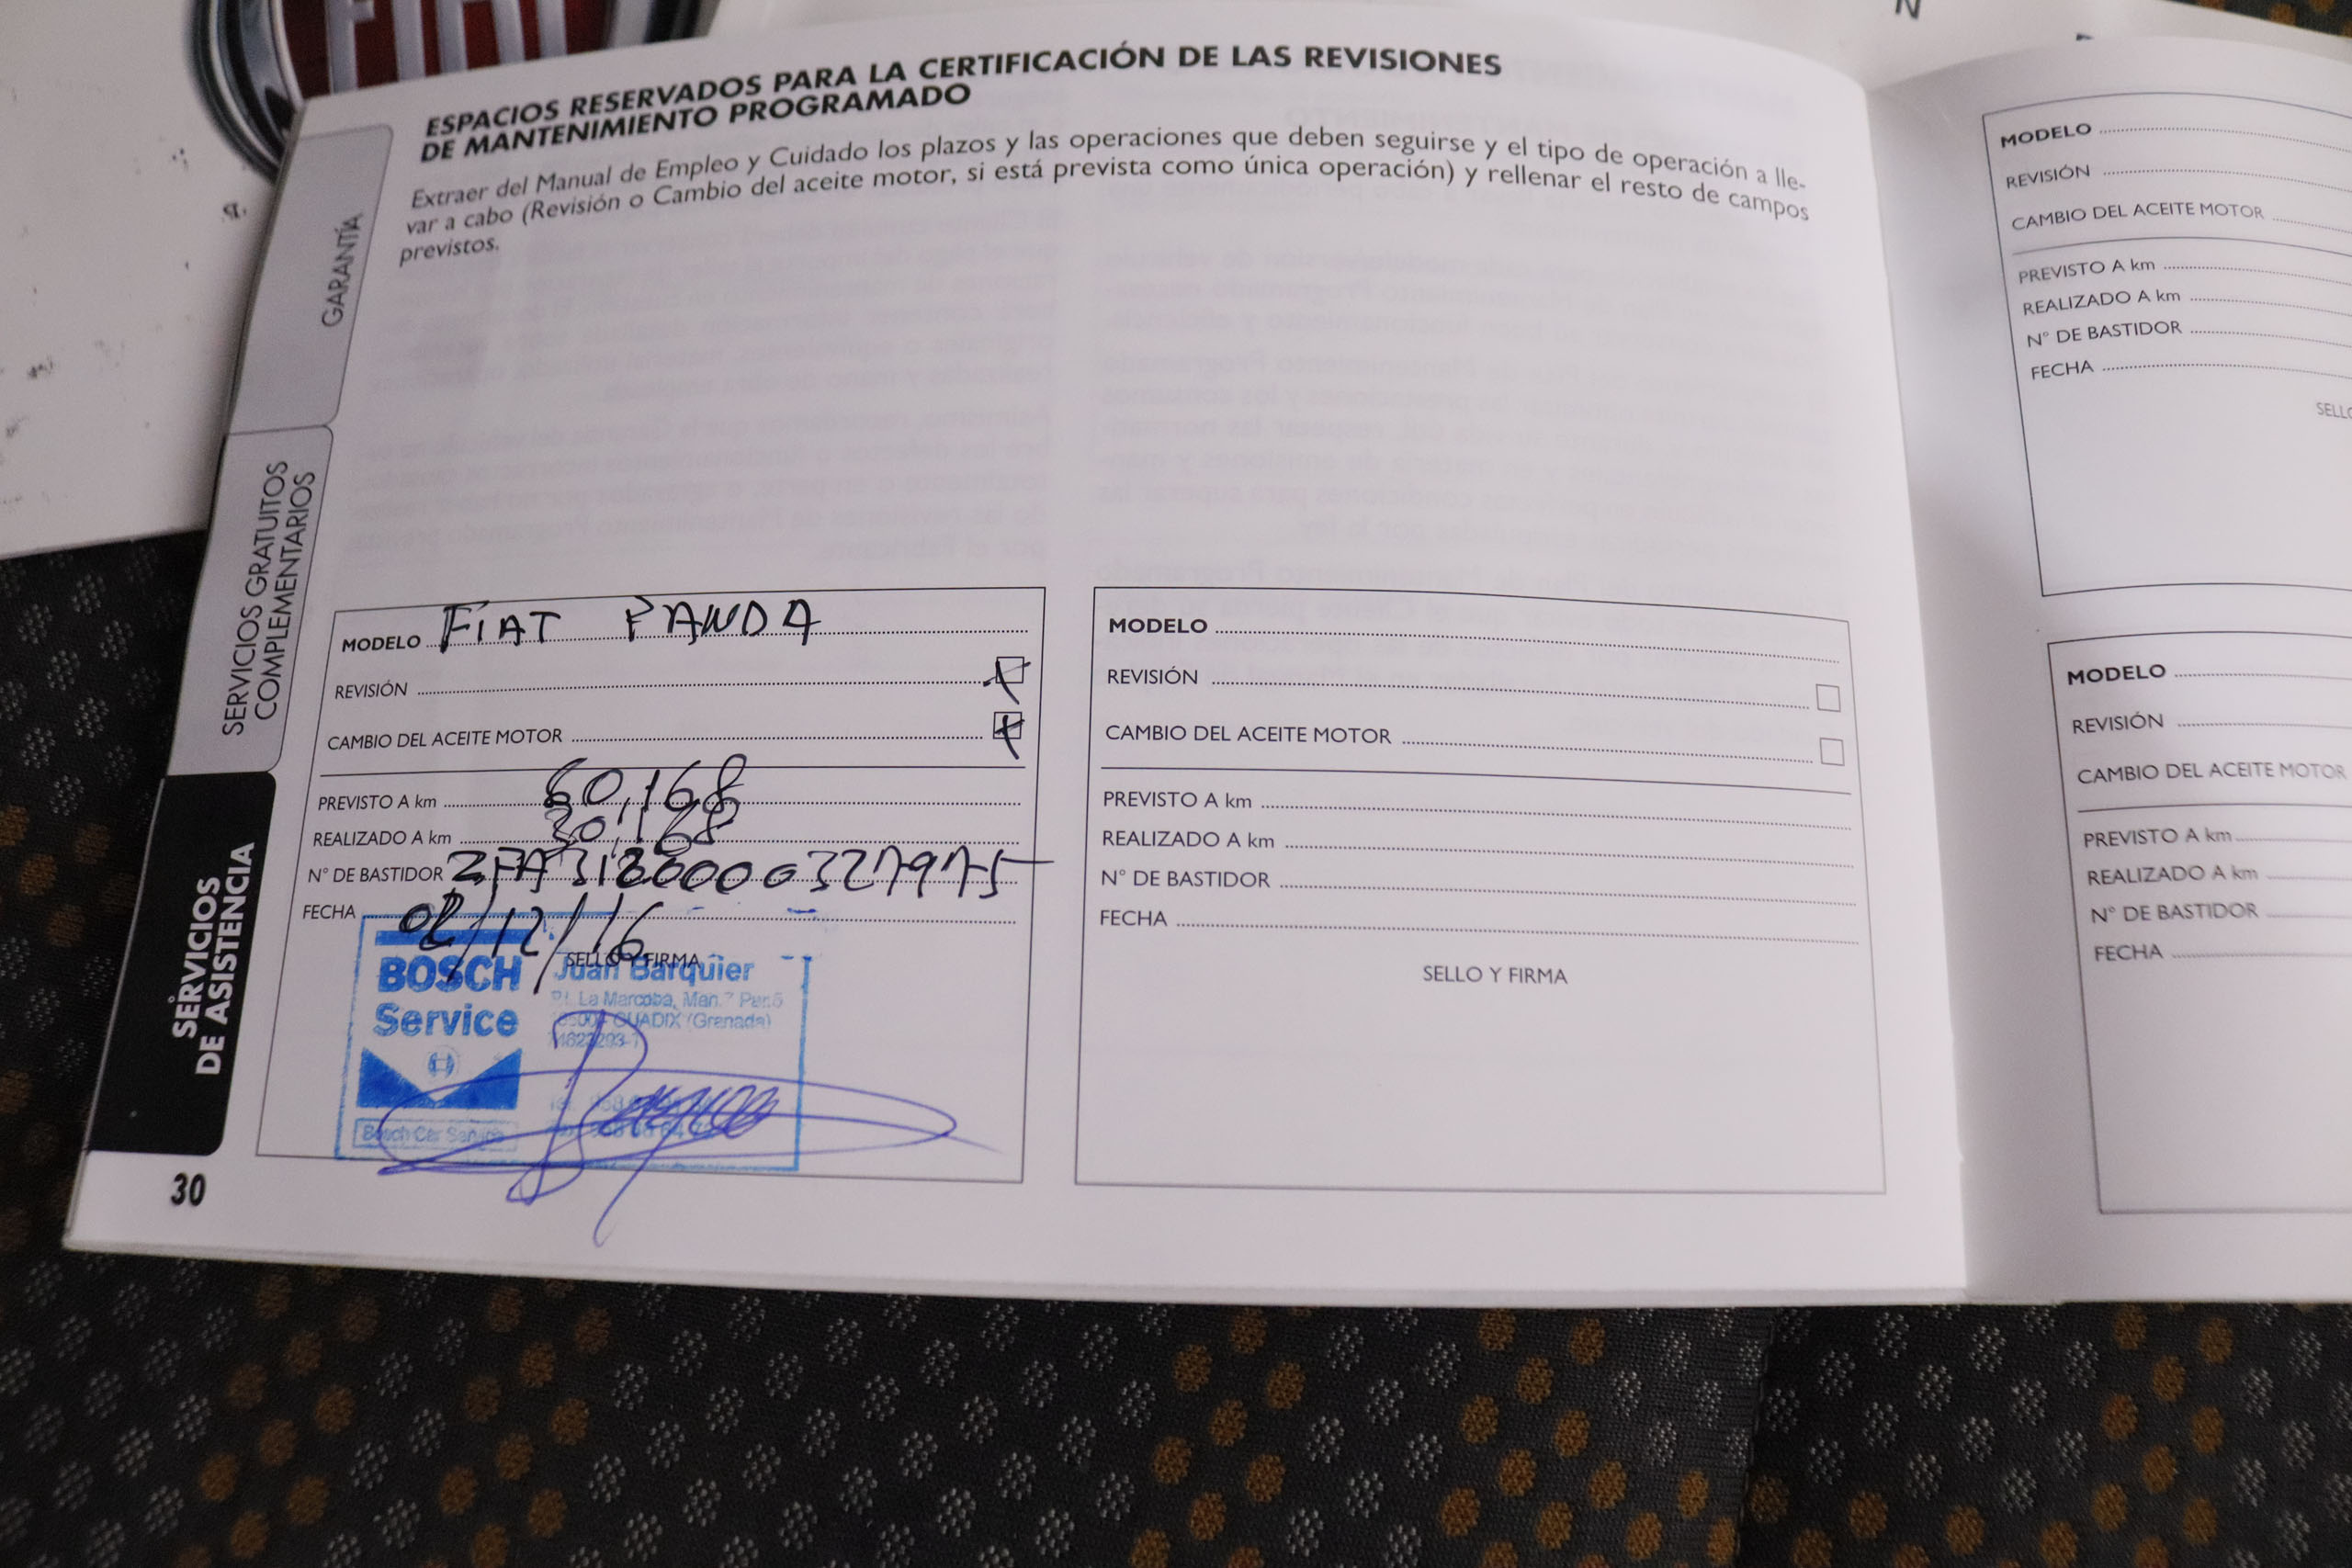 FIAT
N
ESPACIOS RESERVADOS PARA LA CERTIFICACIÓN DE LAS REVISIONES
DE MANTENIMIENTO PROGRAMADO
Extraer del Manual de Empleo y Cuidado los plazos y las operaciones que deben seguirse y el tipo de operación a lle-
var a cabo (Revisión o Cambio del aceite motor, si está prevista como única operación) y rellenar el resto de campos
previstos.
GARANTÍA
SERVICIOS GRATUITOS
COMPLEMENTARIOS
SERVICIOS
DE ASISTENCIA
MODELO FIAT PANDA
REVISIÓN X
CAMBIO DEL ACEITE MOTOR X
PREVISTO A km 60,168
REALIZADO A km 30,168
N° DE BASTIDOR ZFA3120000
FECHA 02/12/16
SELLO Y FIRMA
BOSCH
Service
Bosch Car Service
Juan Barquier
P.I. La Marcoba, Man.7 Par.5
GUADIX (Granada)
30
MODELO
REVISIÓN
CAMBIO DEL ACEITE MOTOR
PREVISTO A km
REALIZADO A km
N° DE BASTIDOR
FECHA
SELLO Y FIRMA
MODELO
REVISIÓN
CAMBIO DEL ACEITE MOTOR
PREVISTO A km
REALIZADO A km
N° DE BASTIDOR
FECHA
SELLO
MODELO
REVISIÓN
CAMBIO DEL ACEITE MOTOR
PREVISTO A km
REALIZADO A km
N° DE BASTIDOR
FECHA